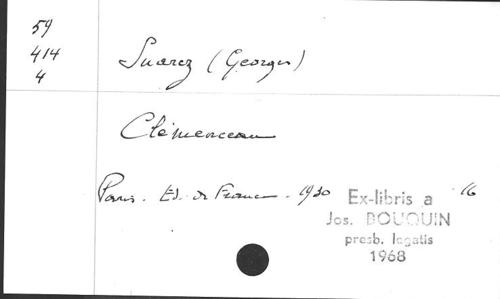 59
414
4
Suarez (Georges)
Clémenceau
Paris. Ed. de France. 1930 16
Ex-libris a
Jos. BOUQUIN
presb. legatis
1968